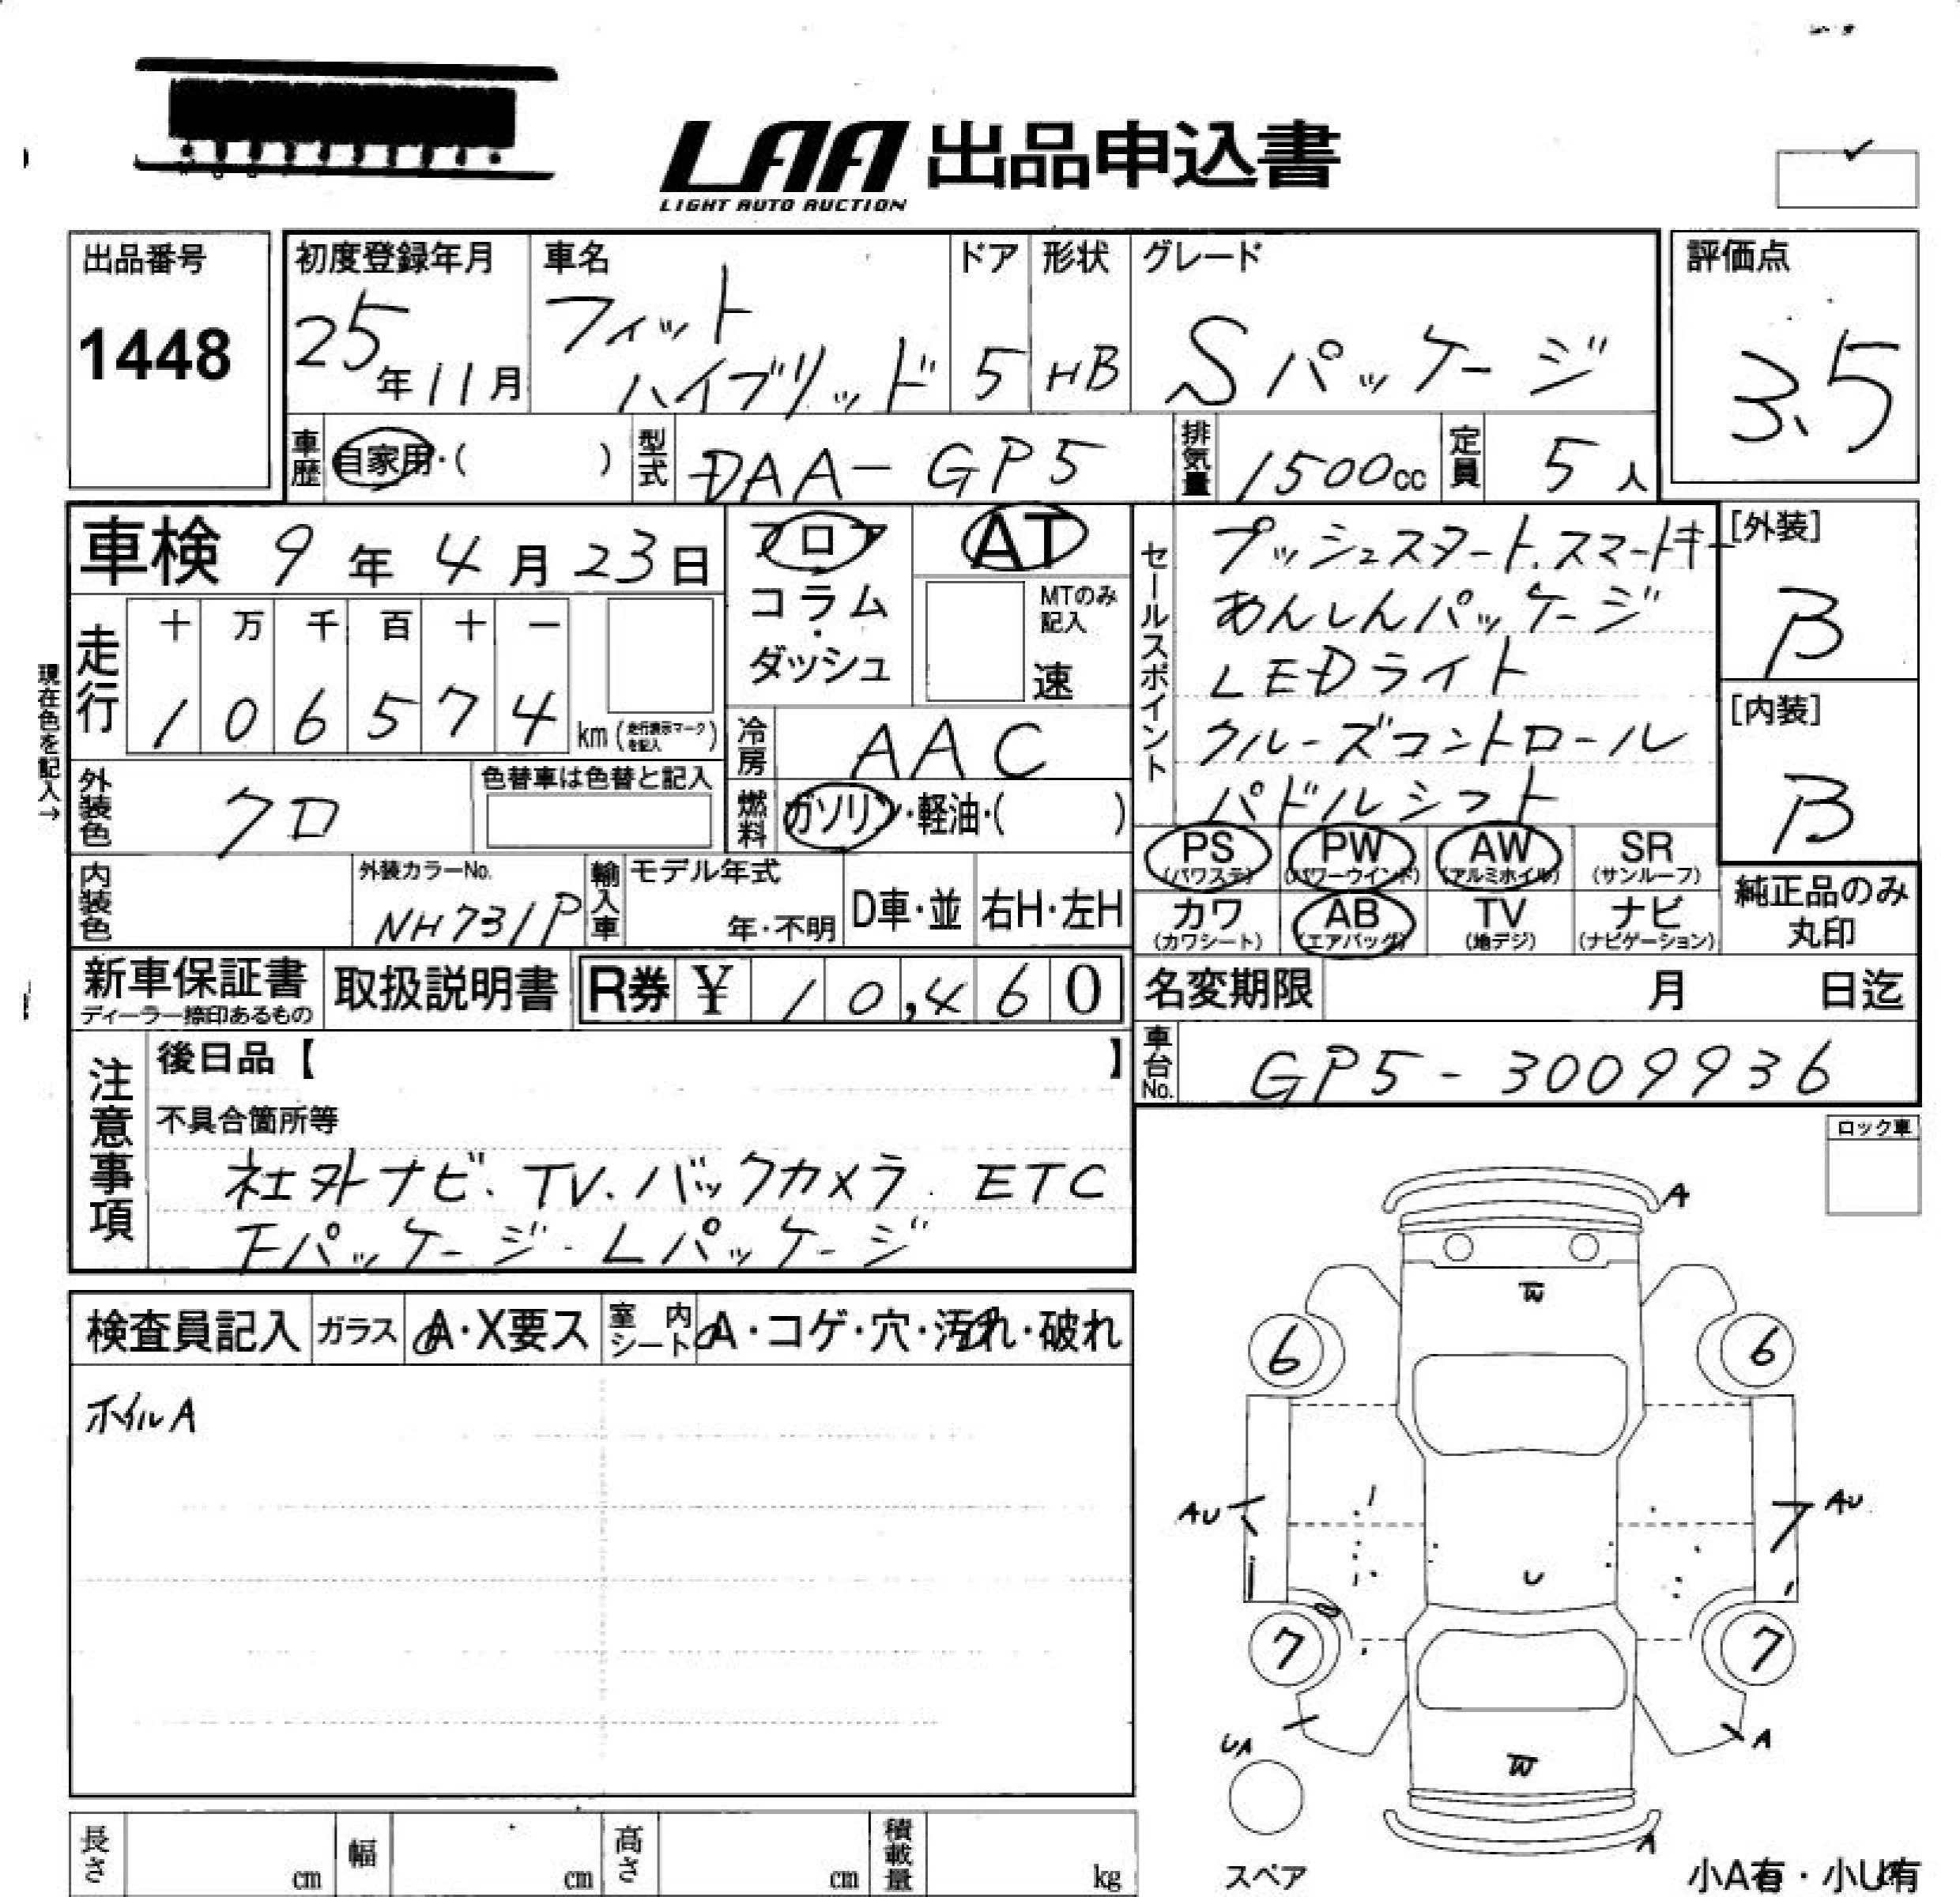 LAA 出品申込書
LIGHT AUTO AUCTION
出品番号
1448
初度登録年月
25年11月
車名
フィット
ハイブリッド
ドア
5
形状
HB
グレード
Sパッケージ
評価点
3.5
車歴
自家用・( )
型式
DAA-GP5
排気量
1500cc
定員
5人
車検 9年4月23日
フロア
コラム
・
ダッシュ
AT
MTのみ
記入
速
セールスポイント
プッシュスタート.スマートキー
あんしんパッケージ
LEDライト
クルーズコントロール
パドルシフト
[外装]
B
[内装]
B
現在色を記入→
走行
十 万 千 百 十 一
1 0 6 5 7 4 km(走行表示マークを記入)
冷房
AAC
外装色
クロ
色替車は色替と記入
燃料
ガソリン・軽油・( )
PS
(パワステ)
PW
(パワーウインド)
AW
(アルミホイル)
SR
(サンルーフ)
カワ
(カワシート)
AB
(エアバッグ)
TV
(地デジ)
ナビ
(ナビゲーション)
純正品のみ
丸印
内装色
外装カラーNo.
NH731P
輸入車
モデル年式
年・不明
D車・並
右H・左H
新車保証書
ディーラー捺印あるもの
取扱説明書
R券 ¥ 10,460
名変期限 月 日迄
車台No.
GP5-3009936
注意事項
後日品【 】
不具合箇所等
社外ナビ.TV.バックカメラ.ETC
Fパッケージ.Lパッケージ
ロック車
検査員記入
ガラス
A・X要ス
室内シート
A・コゲ・穴・汚れ・破れ
ホイルA
A
W
6
6
AU
AU
U
7
7
UA
A
W
A
スペア
小A有・小U有
長さ cm
幅 cm
高さ cm
積載量 kg